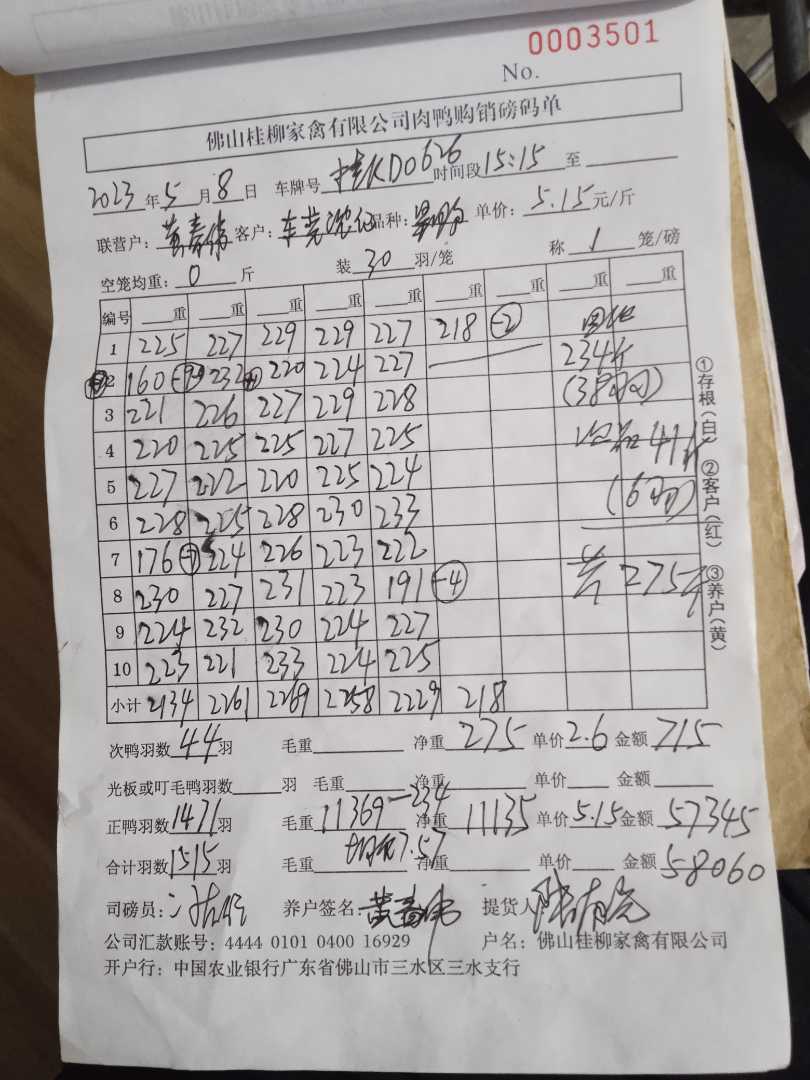 0003501
No.
佛山桂柳家禽有限公司肉鸭购销磅码单
2023年5月8日 车牌号 桂KD0626 时间段15:15 至
联营户: 黄春伟 客户: 品种: 单价: 5.15元/斤
空笼均重: 0 斤 装 30 羽/笼 称 1 笼/磅
编号 重 重 重 重 重 重 重 重 重
1 225 227 229 229 227 218 -2
2 160 232 220 224 227 234斤
3 221 226 227 229 228 (38羽)
4 220 225 225 227 225 41斤
5 227 222 220 225 224 (6羽)
6 228 225 228 230 233
7 176 224 226 223 222 共275斤
8 230 227 231 223 191 -4
9 224 232 230 224 227
10 223 221 233 224 225
小计 2134 2261 2269 2258 2229 218
①存根(白) ②客户(红) ③养户(黄)
次鸭羽数44羽 毛重 净重 275 单价2.6 金额 715
光板或叮毛鸭羽数 羽 毛重 净重 单价 金额
正鸭羽数1471羽 毛重11369-234 净重 11135 单价5.15金额57345
合计羽数1515羽 毛重 均重7.57 净重 单价 金额58060
司磅员: 养户签名: 黄春伟 提货人:
公司汇款账号: 4444 0101 0400 16929 户名: 佛山桂柳家禽有限公司
开户行: 中国农业银行广东省佛山市三水区三水支行